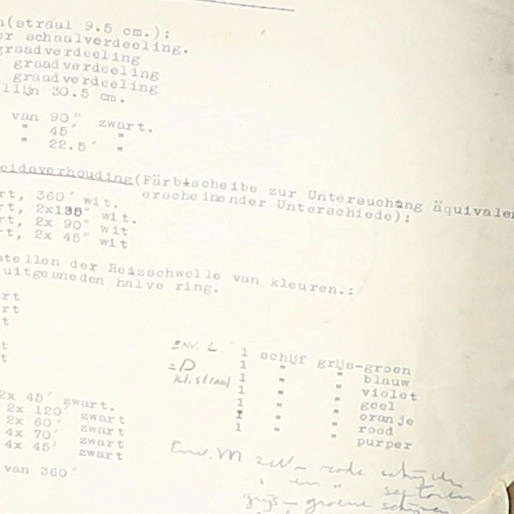 (straal 9.5 cm.);
r schaalverdeeling.
graadverdeeling
graadverdeeling
graadverdeeling
llijn 30.5 cm.
van 90° zwart.
" 45° "
" 22.5° "
eidsverhouding(Färbscheibe zur Untersuchung äquivalen
erscheinender Unterschiede);
rt, 360° wit.
rt, 2x180° wit.
rt, 2x 90° wit
rt, 2x 45° wit
stellen der Reizschwelle van kleuren.:
uitgesneden halve ring.
rt
rt
t
t
t
ENV. L 1 schijf grijs-groen
= D 1 " " blauw
kl. straal 1 " " violet
1 " " geel
1 " " oranje
1 " " rood
1 " " purper
2x 45° zwart.
2x 120° zwart
2x 60° zwart
4x 70° zwart
4x 45° zwart
van 360°
Env. M rode schijven
" en " sectoren
grijs - groene schijven